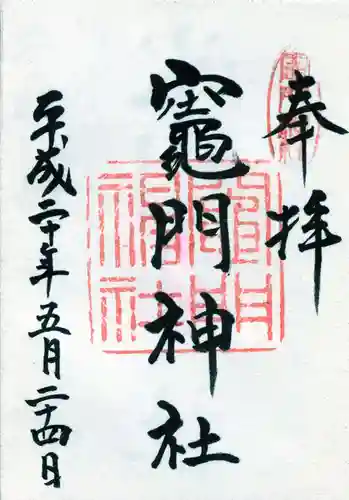 奉拝
竈門神社
平成二十年五月二十四日